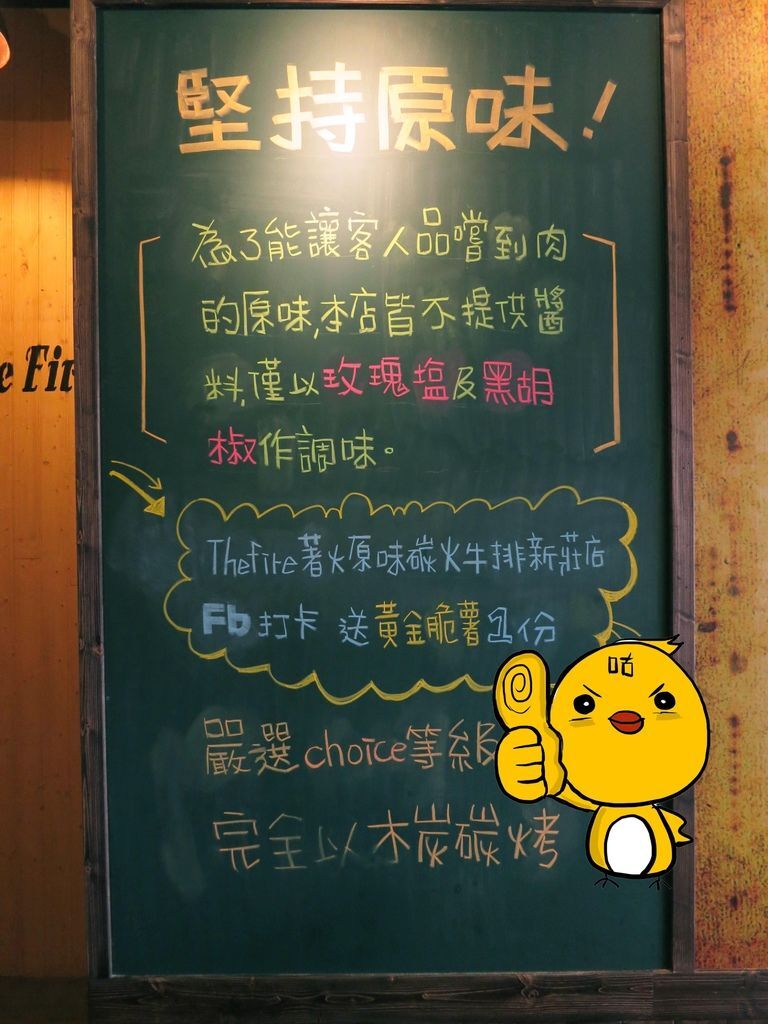 堅持原味！
e Fir
為了能讓客人品嚐到肉
的原味,本店皆不提供醬
料,僅以玫瑰塩及黑胡
椒作調味。
Thefire著火原味碳火牛排新莊店
Fb打卡 送黃金脆薯1份
咕
嚴選choice等級
完全以木炭碳烤